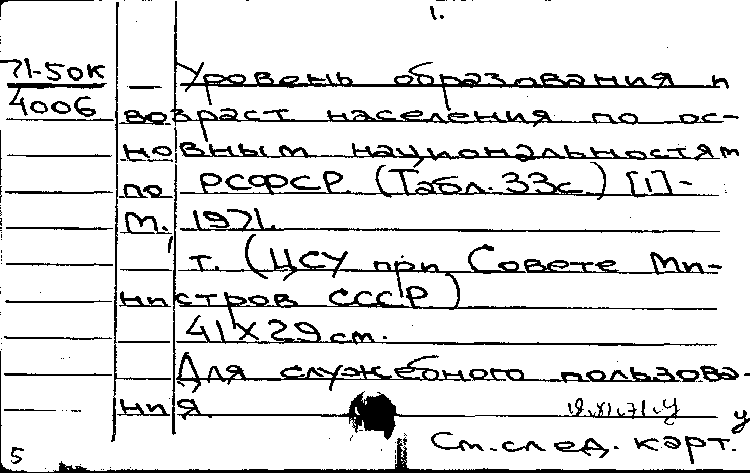 1.
71-50к — Уровень образования и
4006 возраст населения по ос-
новным национальностям
по РСФСР. (Табл. 33с.) [1]-
М. 1971.
т. (ЦСУ при Совете Ми-
нистров СССР)
41×29 см.
Для служебного пользова-
ния.
19.XI.71.У
у
5 См. след. карт.